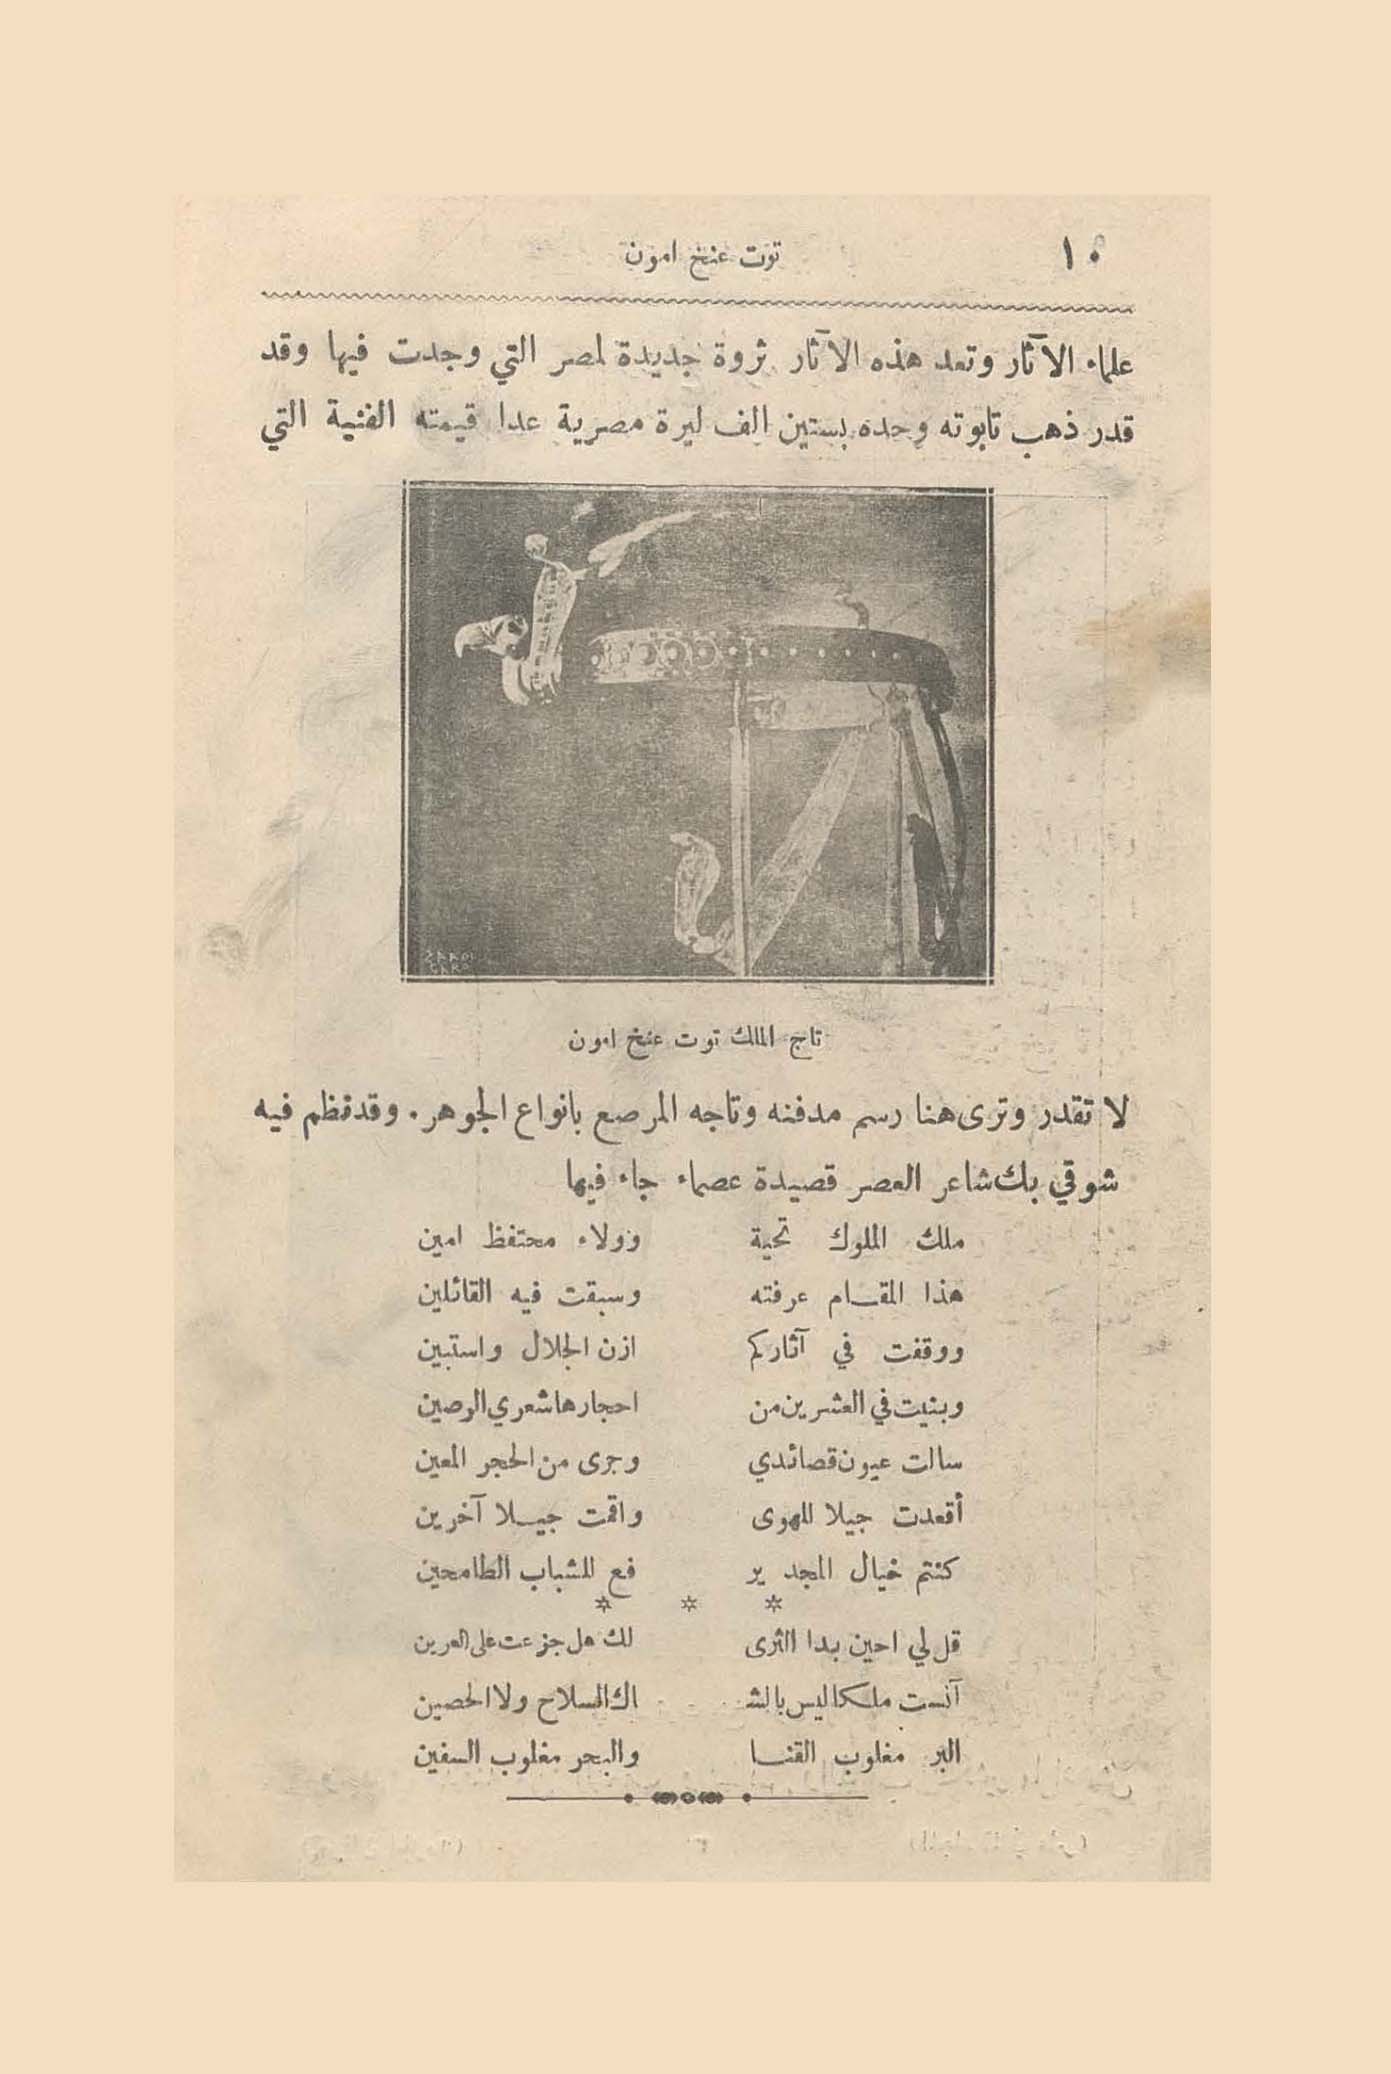 ١٠
توت عنخ امون
علماء الآثار وتعد هذه الآثار ثروة جديدة لمصر التي وجدت فيها وقد
قدر ذهب تابوته وحده بستين الف ليرة مصرية عدا قيمته الفنية التي
تاج الملك توت عنخ امون
لا تقدر وترى هنا رسم مدفنه وتاجه المرصع بانواع الجوهر. وقد نظم فيه
شوقي بك شاعر العصر قصيدة عصماء جاء فيها
ملك الملوك تحية وولاء محتفظ امين
هذا المقام عرفته وسبقت فيه القائلين
ووقفت في آثاركم ازن الجلال واستبين
وبنيت في العشرين من احجارها شعري الرصين
سالت عيون قصائدي وجرى من الحجر المعين
أقعدت جيلا للهوى واقمت جيلا آخرين
كنتم خيال المجد ير فع للشباب الطامحين
* * *
قل لي احين بدا الثرى لك هل جزعت على العرين
آنست ملكا ليس بالشـ اك السلاح ولا الحصين
البر مغلوب القنا والبحر مغلوب السفين